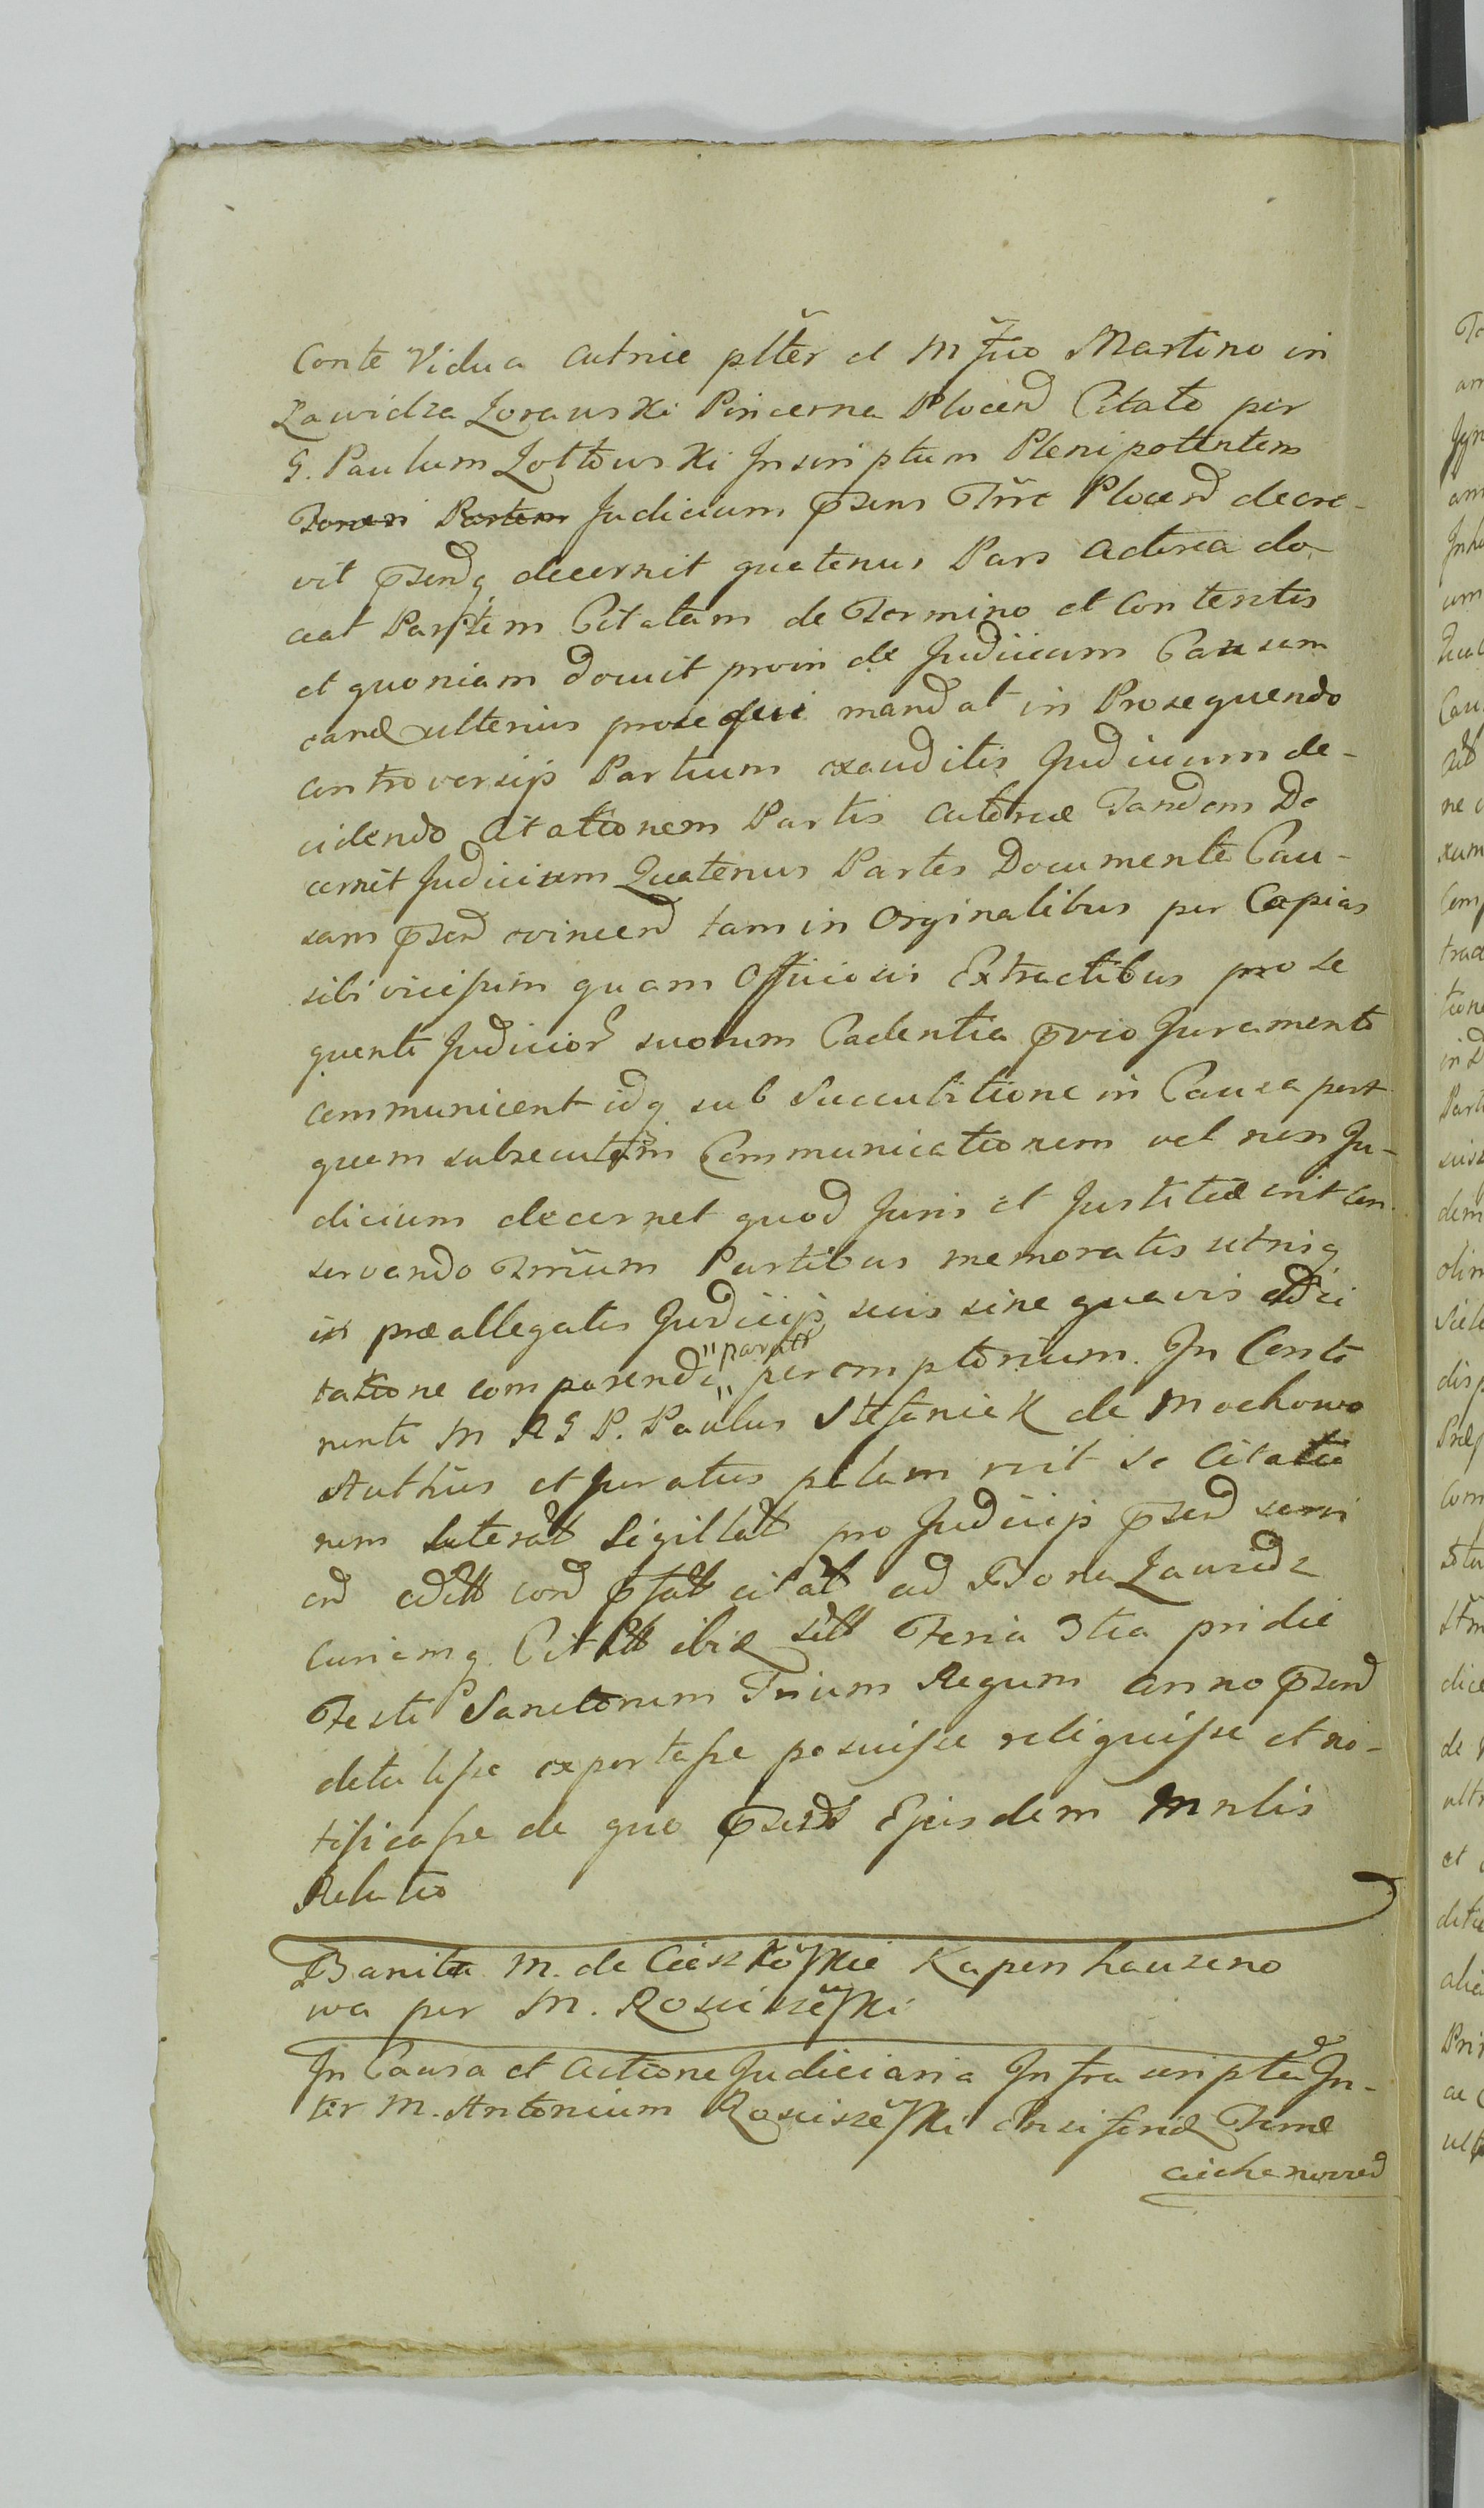 Conte Vidua Actrice plter et Mfico Martino in
Zawidza Zorawski Pincerna Plocens Citato per
G. Paulum Zoltowski Inscriptum Plenipotentem
Judicium psens Trre Plocens decre-
vit psensq decernit quatenus Pars Actorea do-
ceat Partem Citatam de Termino et Contentis
et quoniam docuit proin de Judicium Causam
eand ulterius prosequi mandat in Prosequendo
controversijs Partium exauditis Judicium de-
cidendo Citationem Partis Actoreæ Tandem De
cernit Judicium Quatenus Partes Documenta Cau-
sam psens evincend tam in Orginalibus per Copias
sibi vicissim quam Officiosis Extractibus pro se
quenti Judicior suorum Cadentia pvio Juramento
communicent idq sub Succubitione in Causa post
quam subsecutam Communicationem vel non Ju-
dicium decernet quod Juris et Justitiæ erit con
servando Trmum Partibus memoratis utrisq
in præallegatis Judicijs suis sine quavis adci
tatione comparendi " paratt " peremptorium. In Conti
nenti M R G P. Paulus Stefaniek de Mochowo
Authus et juratus palam rcit se Citatio
nem literat Sigillat pro Judicijs psens
ad Bona Zawidz
Curiamq ibid Feria 3tia pridie
Festi Sanctorum Trium Regum anno psend
detulisse exportasse posuisse reliquisse et no-
tificasse de quo psens Ejusdem Mnlis
Relatio
Banita M. de Cieszkoskie Kapenhauzeno
wa per M. Rosciszeski
In Causa et Actione Judiciaria Infrascripta In-
ter M. Antonium Rosciszeski Ensiferid